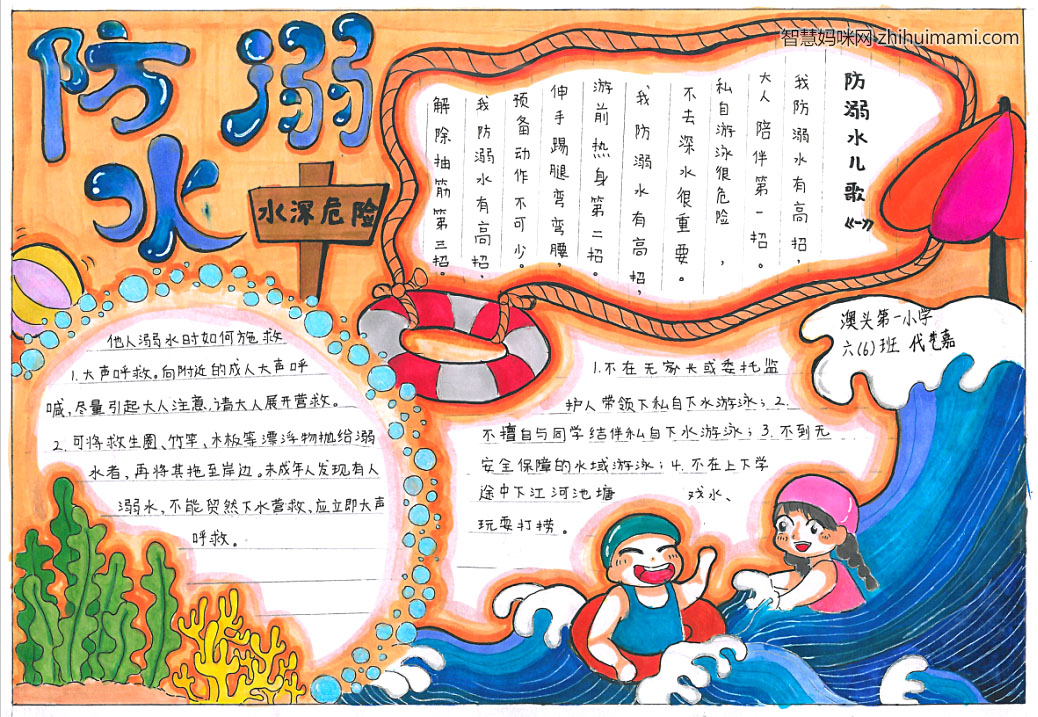 智慧妈咪网 zhihuimami.com
防溺水
水深危险
防溺水儿歌《一》
我防溺水有高招，
大人陪伴第一招。
私自游泳很危险，
不去深水很重要。
我防溺水有高招，
游前热身第二招。
伸手踢腿弯弯腰，
预备动作不可少。
我防溺水有高招，
解除抽筋第三招。
澳头第一小学
六(6)班 代楚嘉
他人溺水时如何施救
1.大声呼救。向附近的成人大声呼
喊,尽量引起大人注意,请大人展开营救。
2.可将救生圈、竹竿、木板等漂浮物抛给溺
水者,再将其拖至岸边。未成年人发现有人
溺水,不能贸然下水营救、应立即大声
呼救。
1.不在无家长或委托监
护人带领下私自下水游泳；2.
不擅自与同学结伴私自下水游泳；3.不到无
安全保障的水域游泳；4.不在上下学
途中下江河池塘 戏水、
玩耍打捞。